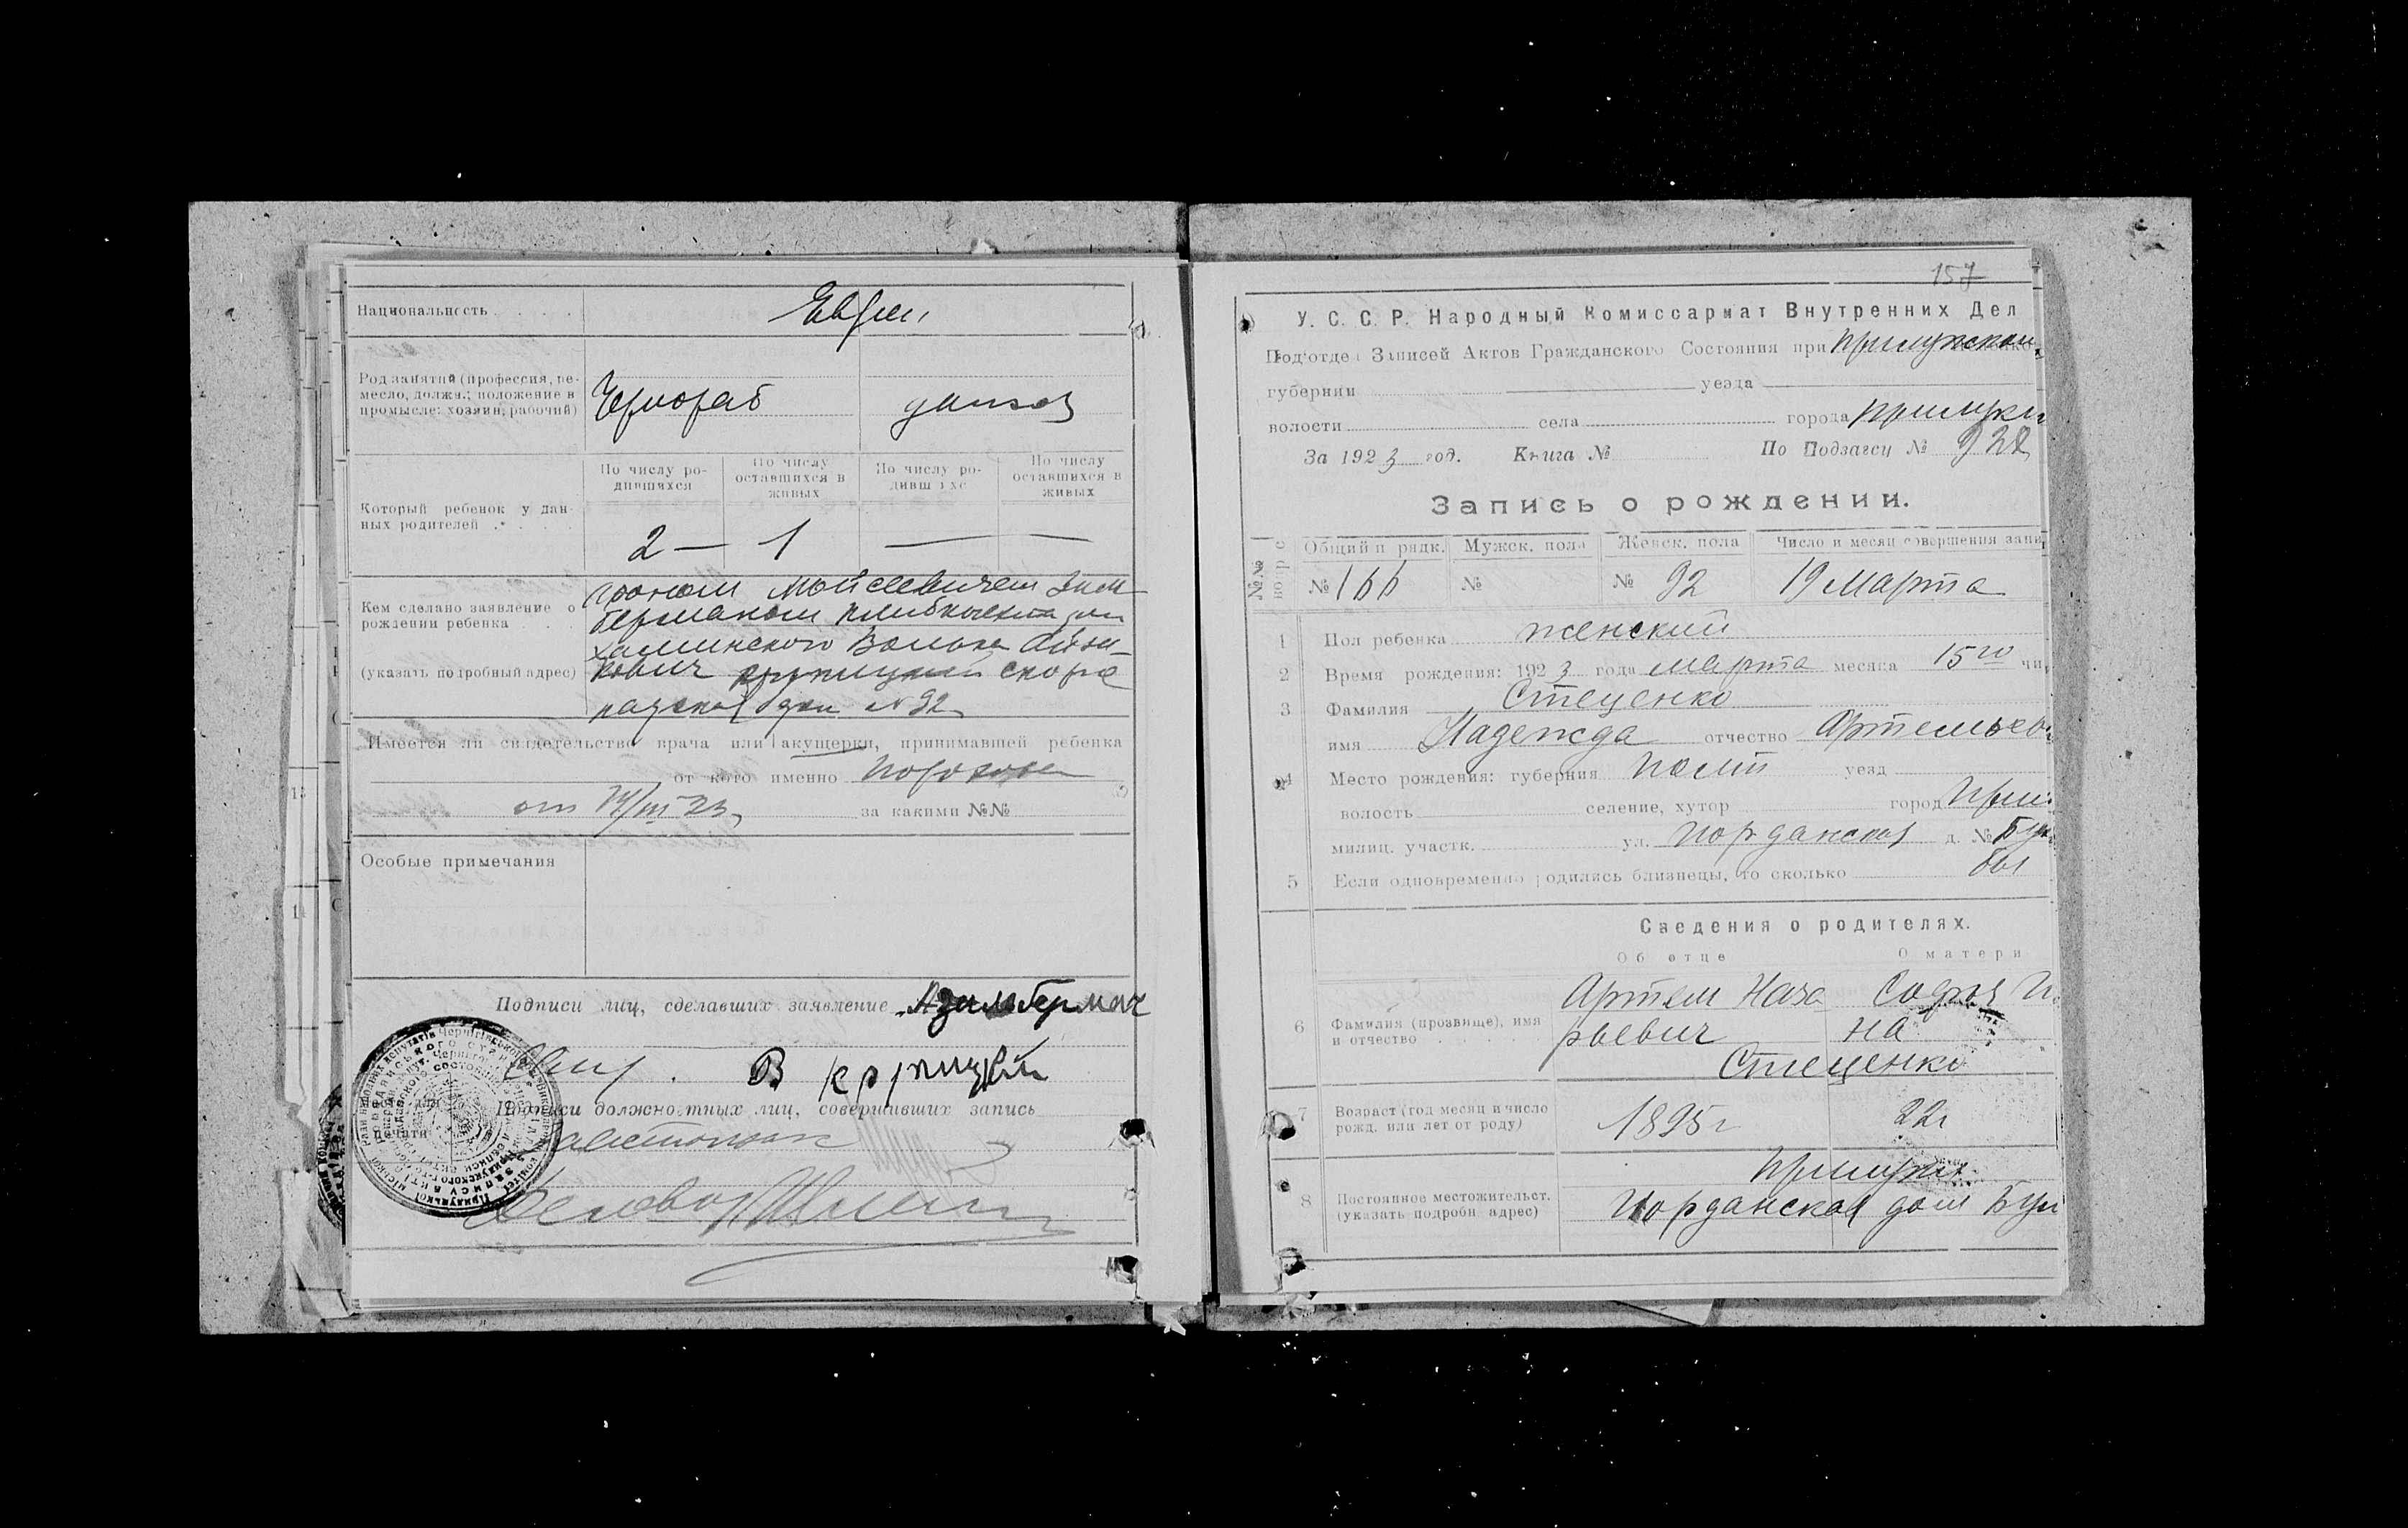 Национальность . . . . Евреи
Род занятий (профессия, ре-
месло, должн.; положение в
промысле: хозяин, рабочий)
Чернораб
домхоз
Который ребенок у дан-
ных родителей . . . .
По числу ро-
дившихся
По числу
оставшихся в
живых
По числу ро-
дивш хс
По числу
оставшихся в
живых
2 — 1 — —
Кем сделано заявление о
рождении ребенка . . .
(указать подробный адрес)
Ароном Мойсеевичем Зиль
берманом
Волько Айзи-
кович Крупицкий скоро
падская дом № 92
Имеется ли свидетельство врача или акушерки, принимавшей ребенка
от кого именно
от 14/III 23 за какими №№
Особые примечания
Подписи лиц, сделавших заявление Азильберман
В крупицкий
Подписи должностных лиц, совершивших запись
Деловод
157
У. С. С. Р. Народный Комиссариат Внутренних Дел
Подотдел Записей Актов Гражданского Состояния при Прилукском
губернии уезда
волости села города Прилуки
За 1923 год. Книга № По Подзагсу № 928
Запись о рождении.
№№
Общий п рядк. Мужск. пола Женск. пола Число и месяц совершения запи
№ 166 № № 92 19 Марта
1 Пол ребенка женский
2 Время рождения: 1923 года марта месяца 15го чи
3 Фамилия Стеценко
имя Надежда отчество Артемьев
4 Место рождения: губерния Полт уезд
волость селение, хутор город Прил
милиц. участк. ул. Иорданская д. № Бул
бы
5 Если одновременно родились близнецы, то сколько
Сведения о родителях.
Об отце О матери
6 Фамилия (прозвище), имя
и отчество . . . . .
Артем Наза София
рьевич на
Стеценко
7 Возраст (год месяц и число
рожд. или лет от роду)
1895 г 22 г
8 Постоянное местожительст.
(указать подробн адрес)
Прилуки
Иорданская дом Бул